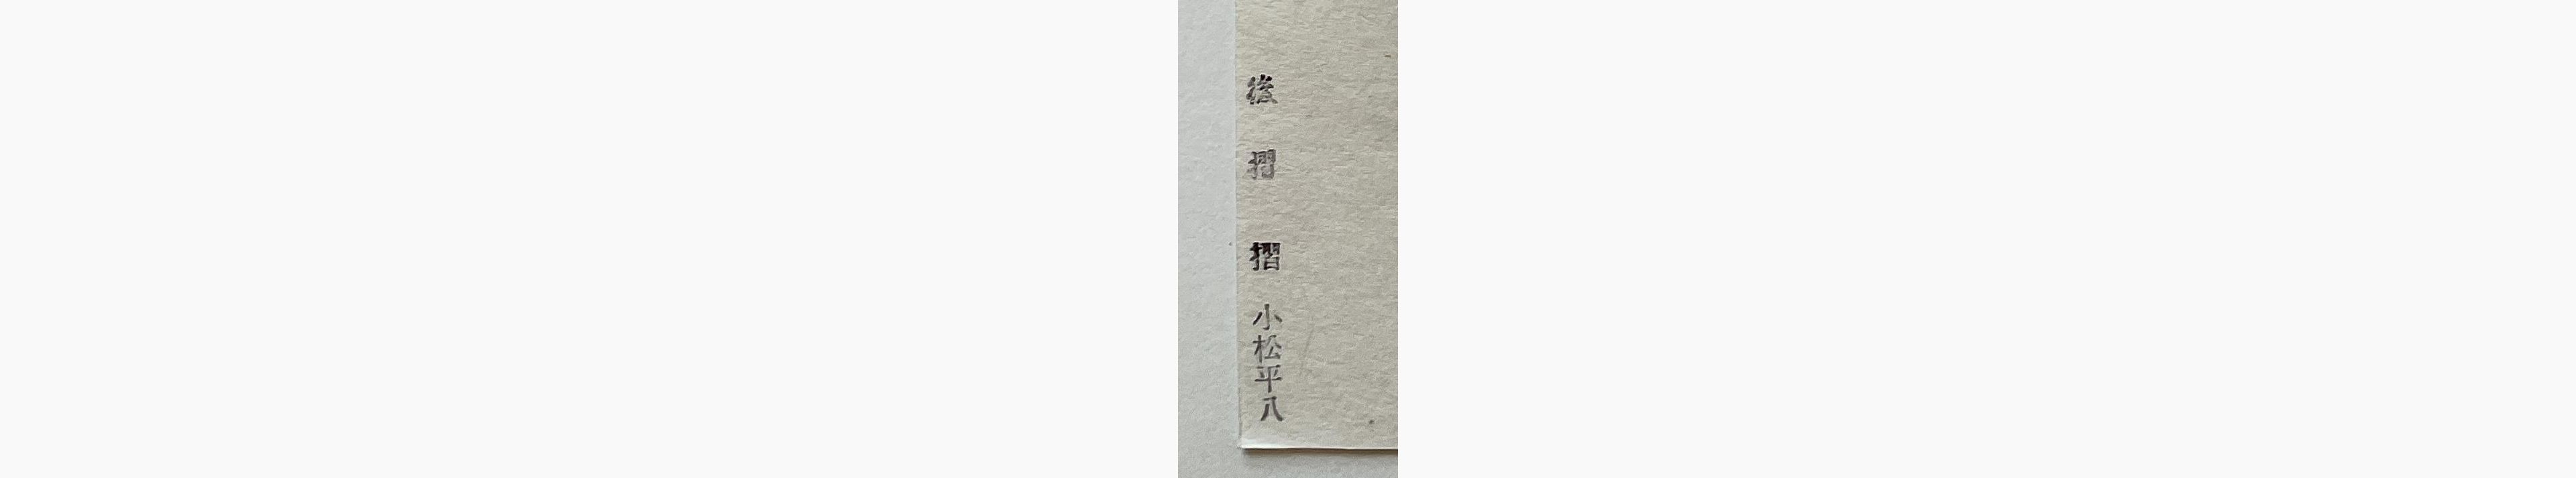 後摺 摺 小松平八